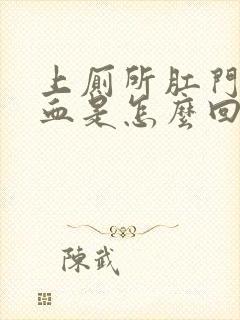 上廁所肛門
血是怎麼回
陳武